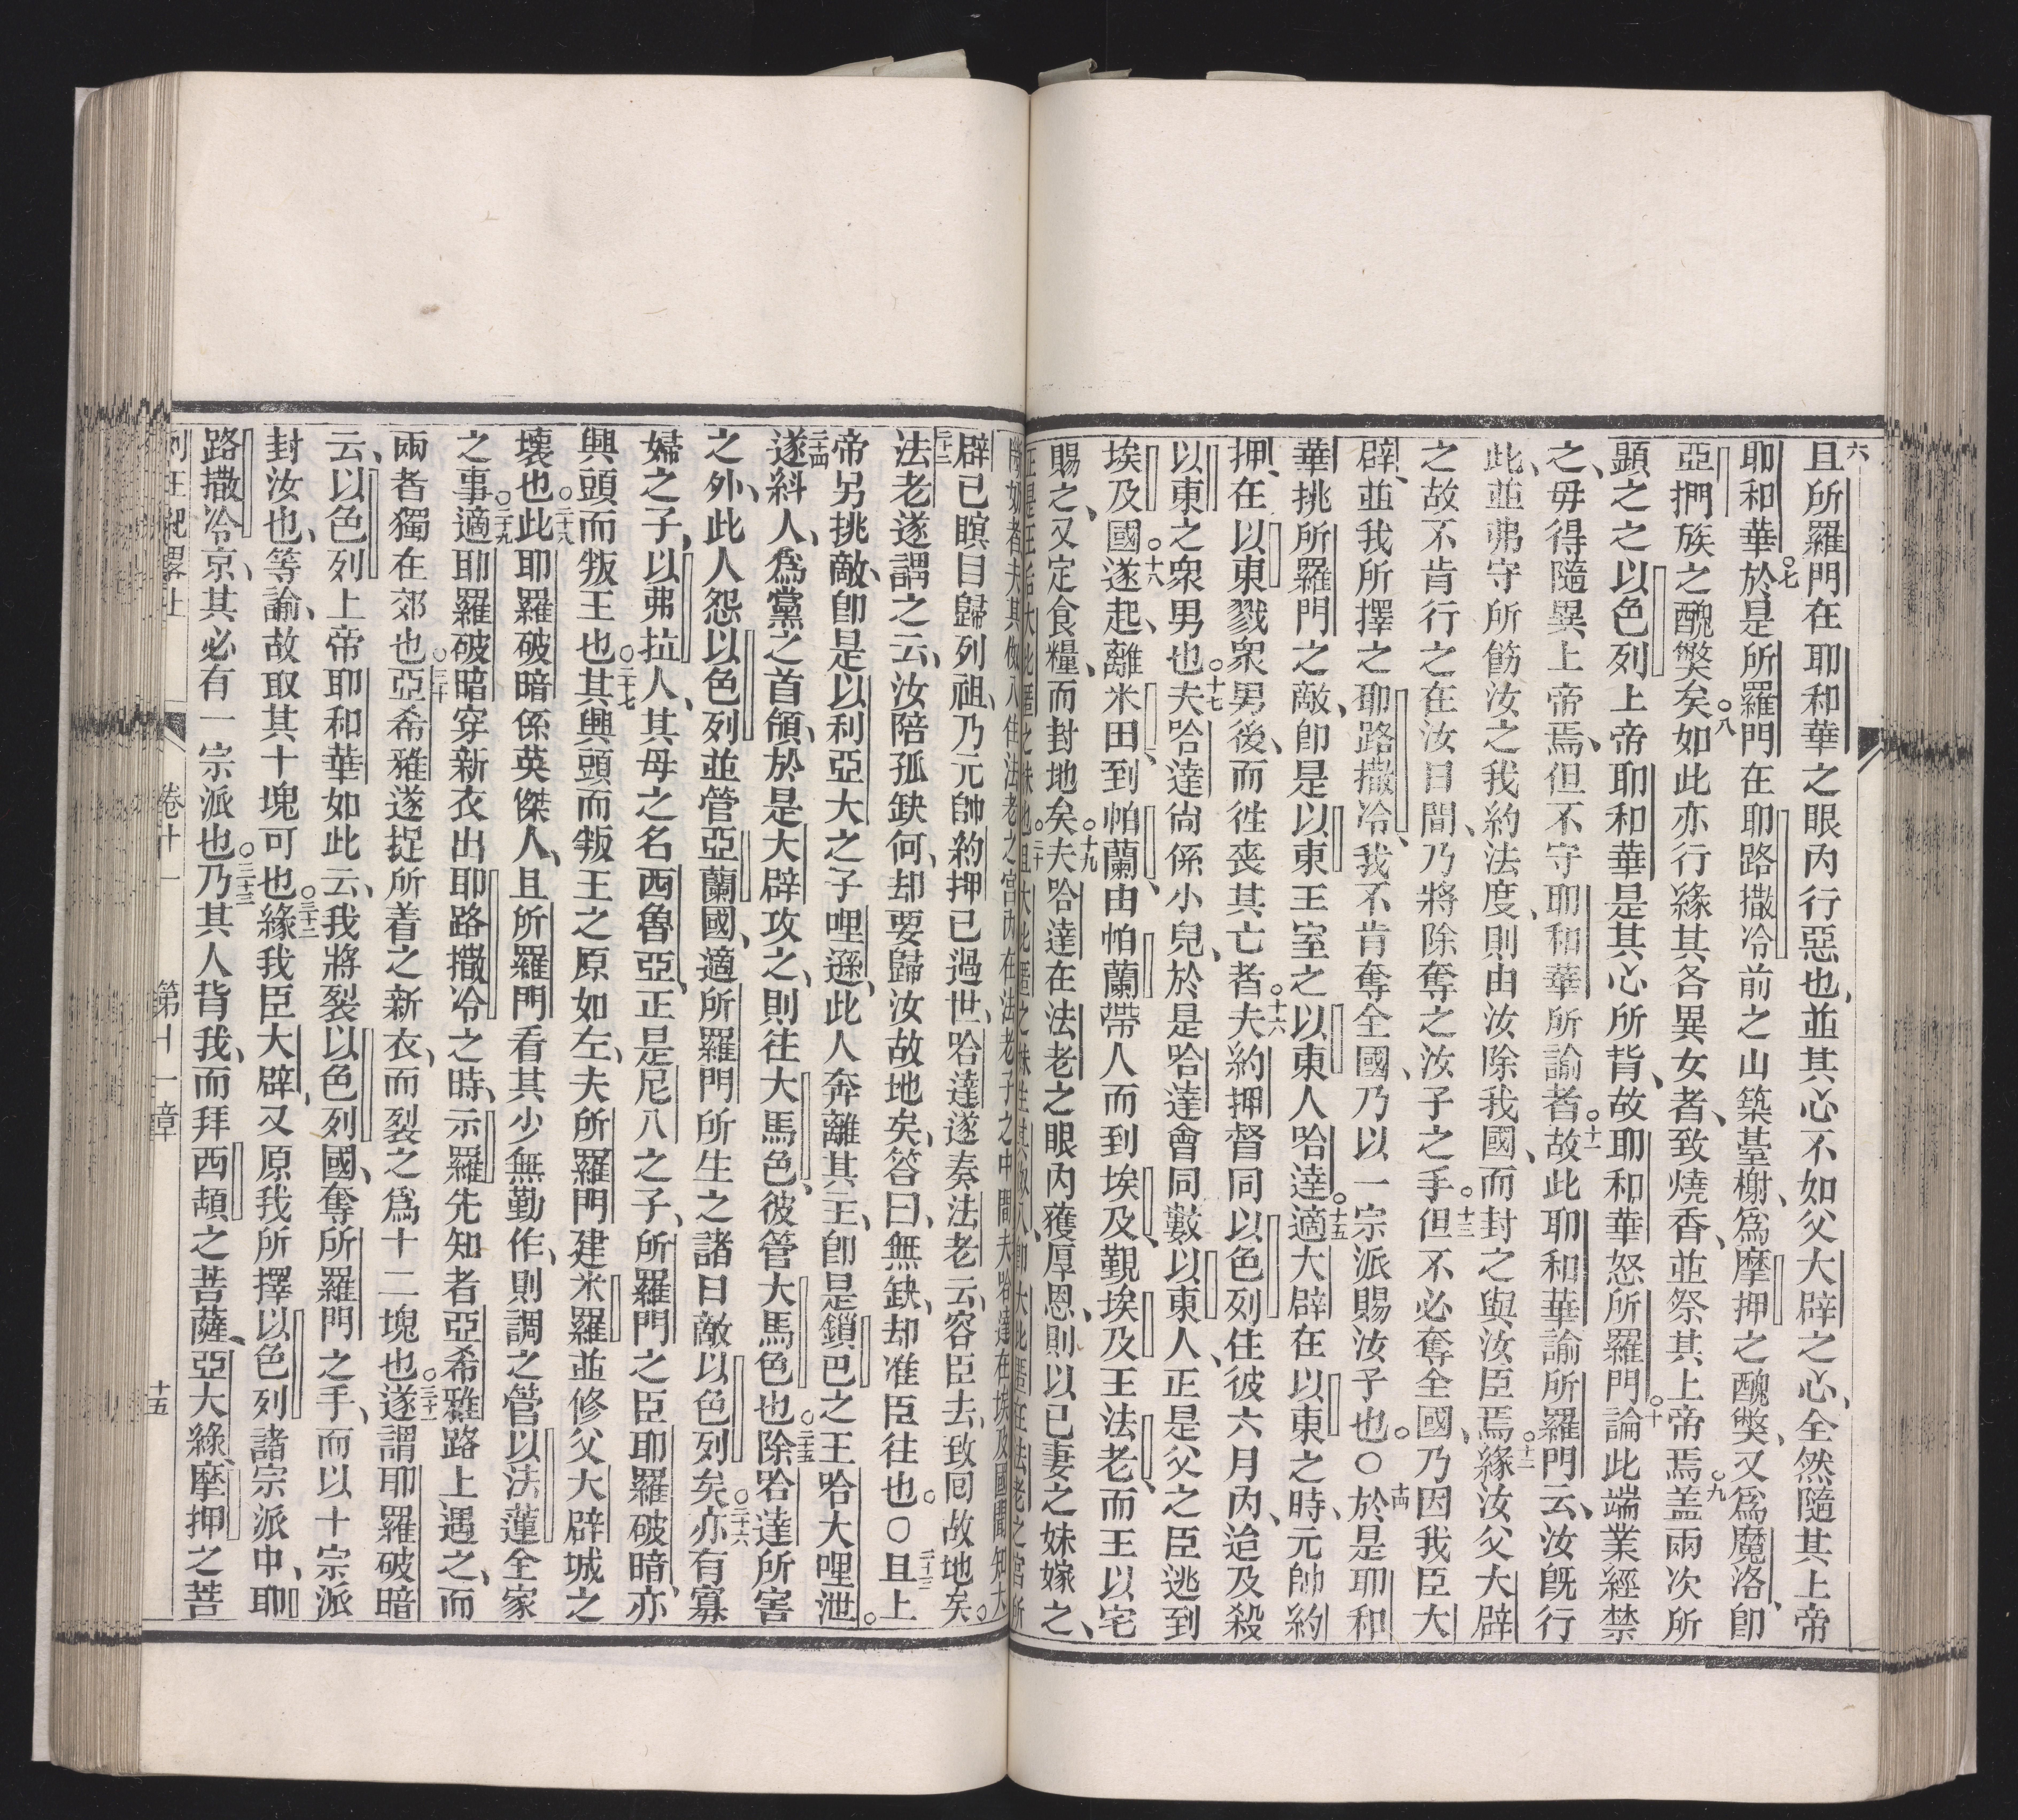 六且所羅門在耶和華之眼內行惡也、並其心不如父大辟之心、全然隨其上帝
耶和華○七於是所羅門在耶路撒冷前之山築墓榭、爲摩押之醜獘、又爲魔洛、卽
亞捫族之醜獘矣○八如此亦行緣其各異女者、致燒香、並祭其上帝焉○九盖兩次所
顯之之以色列上帝耶和華是其心所背、故耶和華怒所羅門○十論此端業經禁
之、毋得隨異上帝焉、但不守耶和華所諭者○十一故此耶和華諭所羅門云、汝旣行
此、並弗守所飭汝之我約法度、則由汝除我國、而封之與汝臣焉○十二緣汝父大辟
之故不肯行之在汝日間、乃將除奪之汝子之手○十三但不必奪全國、乃因我臣大
辟、並我所擇之耶路撒冷、我不肯奪全國、乃以一宗派賜汝子也○○十四於是耶和
華挑所羅門之敵、卽是以東王室之以東人哈達○十五適大辟在以東之時、元帥約
押、在以東戮衆男後、而徃喪其亡者○十六夫約押督同以色列住彼六月內、迨及殺
以東之衆男也○十七夫哈達尙係小兒、於是哈達會同數以東人、正是父之臣逃到
埃及國○十八遂起、離米田到帕蘭、由帕蘭帶人而到埃及、覲埃及王法老、而王以宅
賜之、又定食糧、而封地矣○十九夫哈達在法老之眼內獲厚恩、則以己妻之妹嫁之、
辟已瞑目歸列祖、乃元帥約押已過世、哈達遂奏法老云、容臣去、致回故地矣。
二十二法老遂謂之云、汝陪孤缺何、却要歸汝故地矣、答曰、無缺、却准臣往也。○二十三且上
帝另挑敵、卽是以利亞大之子哩遜、此人奔離其主、卽是鎖巴之王哈大哩泄。
二十四遂糾人、爲黨之首領、於是大辟攻之、則往大馬色、彼管大馬色也○二十五除哈達所害
之外、此人怨以色列並管亞蘭國、適所羅門所生之諸日敵以色列矣○二十六亦有寡
婦之子、以弗拉人、其母之名西魯亞、正是尼八之子、所羅門之臣耶羅破暗、亦
興頭而叛王也○二十七其興頭而叛王之原如左、夫所羅門建米羅並修父大辟城之
壞也○二十八此耶羅破暗係英傑人、且所羅門看其少無勤作、則調之管以法蓮全家
之事○二十九適耶羅破暗穿新衣出耶路撒冷之時、示羅先知者亞希雅路上遇之、而
兩者獨在郊也○三十亞希雅遂捉所着之新衣、而裂之爲十二塊也○三十一遂謂耶羅破暗
云、以色列上帝耶和華如此云、我將裂以色列國、奪所羅門之手、而以十宗派
封汝也、等諭、故取其十塊可也○三十二緣我臣大辟、又原我所擇以色列諸宗派中、耶
路撒冷京、其必有一宗派也○三十三乃其人背我、而拜西頡之菩薩、亞大綠、摩押之菩
卷十一 第十一章 十五